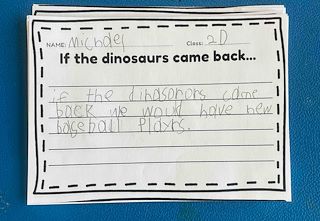 NAME: Michael Class: 2D
If the dinosaurs came back...
if the dinasonrs came
back we would have new
baseball Players.